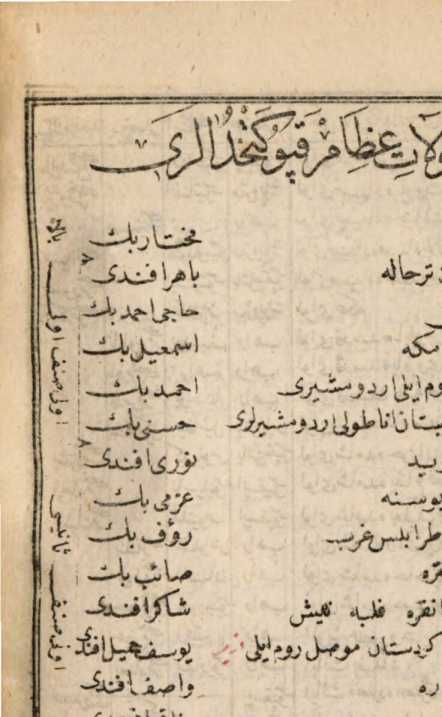 ولات عظام قپو كتخدالری
مختار بك
ترحاله باهر افندی
حاجی احمد بك
مكه اسمعیل بك
وم ایلی اردو مشیری احمد بك
بستان اناطولی اردو مشیرلری حسنی بك
نوری افندی
بوسنه عزمی بك
طرابلس غرب رؤف بك
صائب بك
انقره فلبه شاكر افندی
كردستان موصل روم ایلی یوسف جمیل افندی
ره واصف افندی
بالا
اولی صنف اول
ثانیسی
اولی صنف